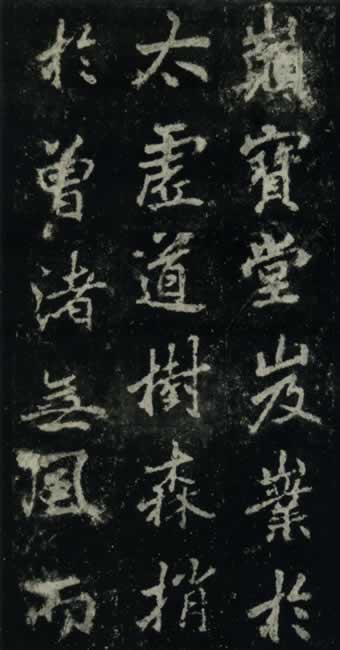 寶堂岌嶪於
太虛道樹森捎
於曾渚無風而